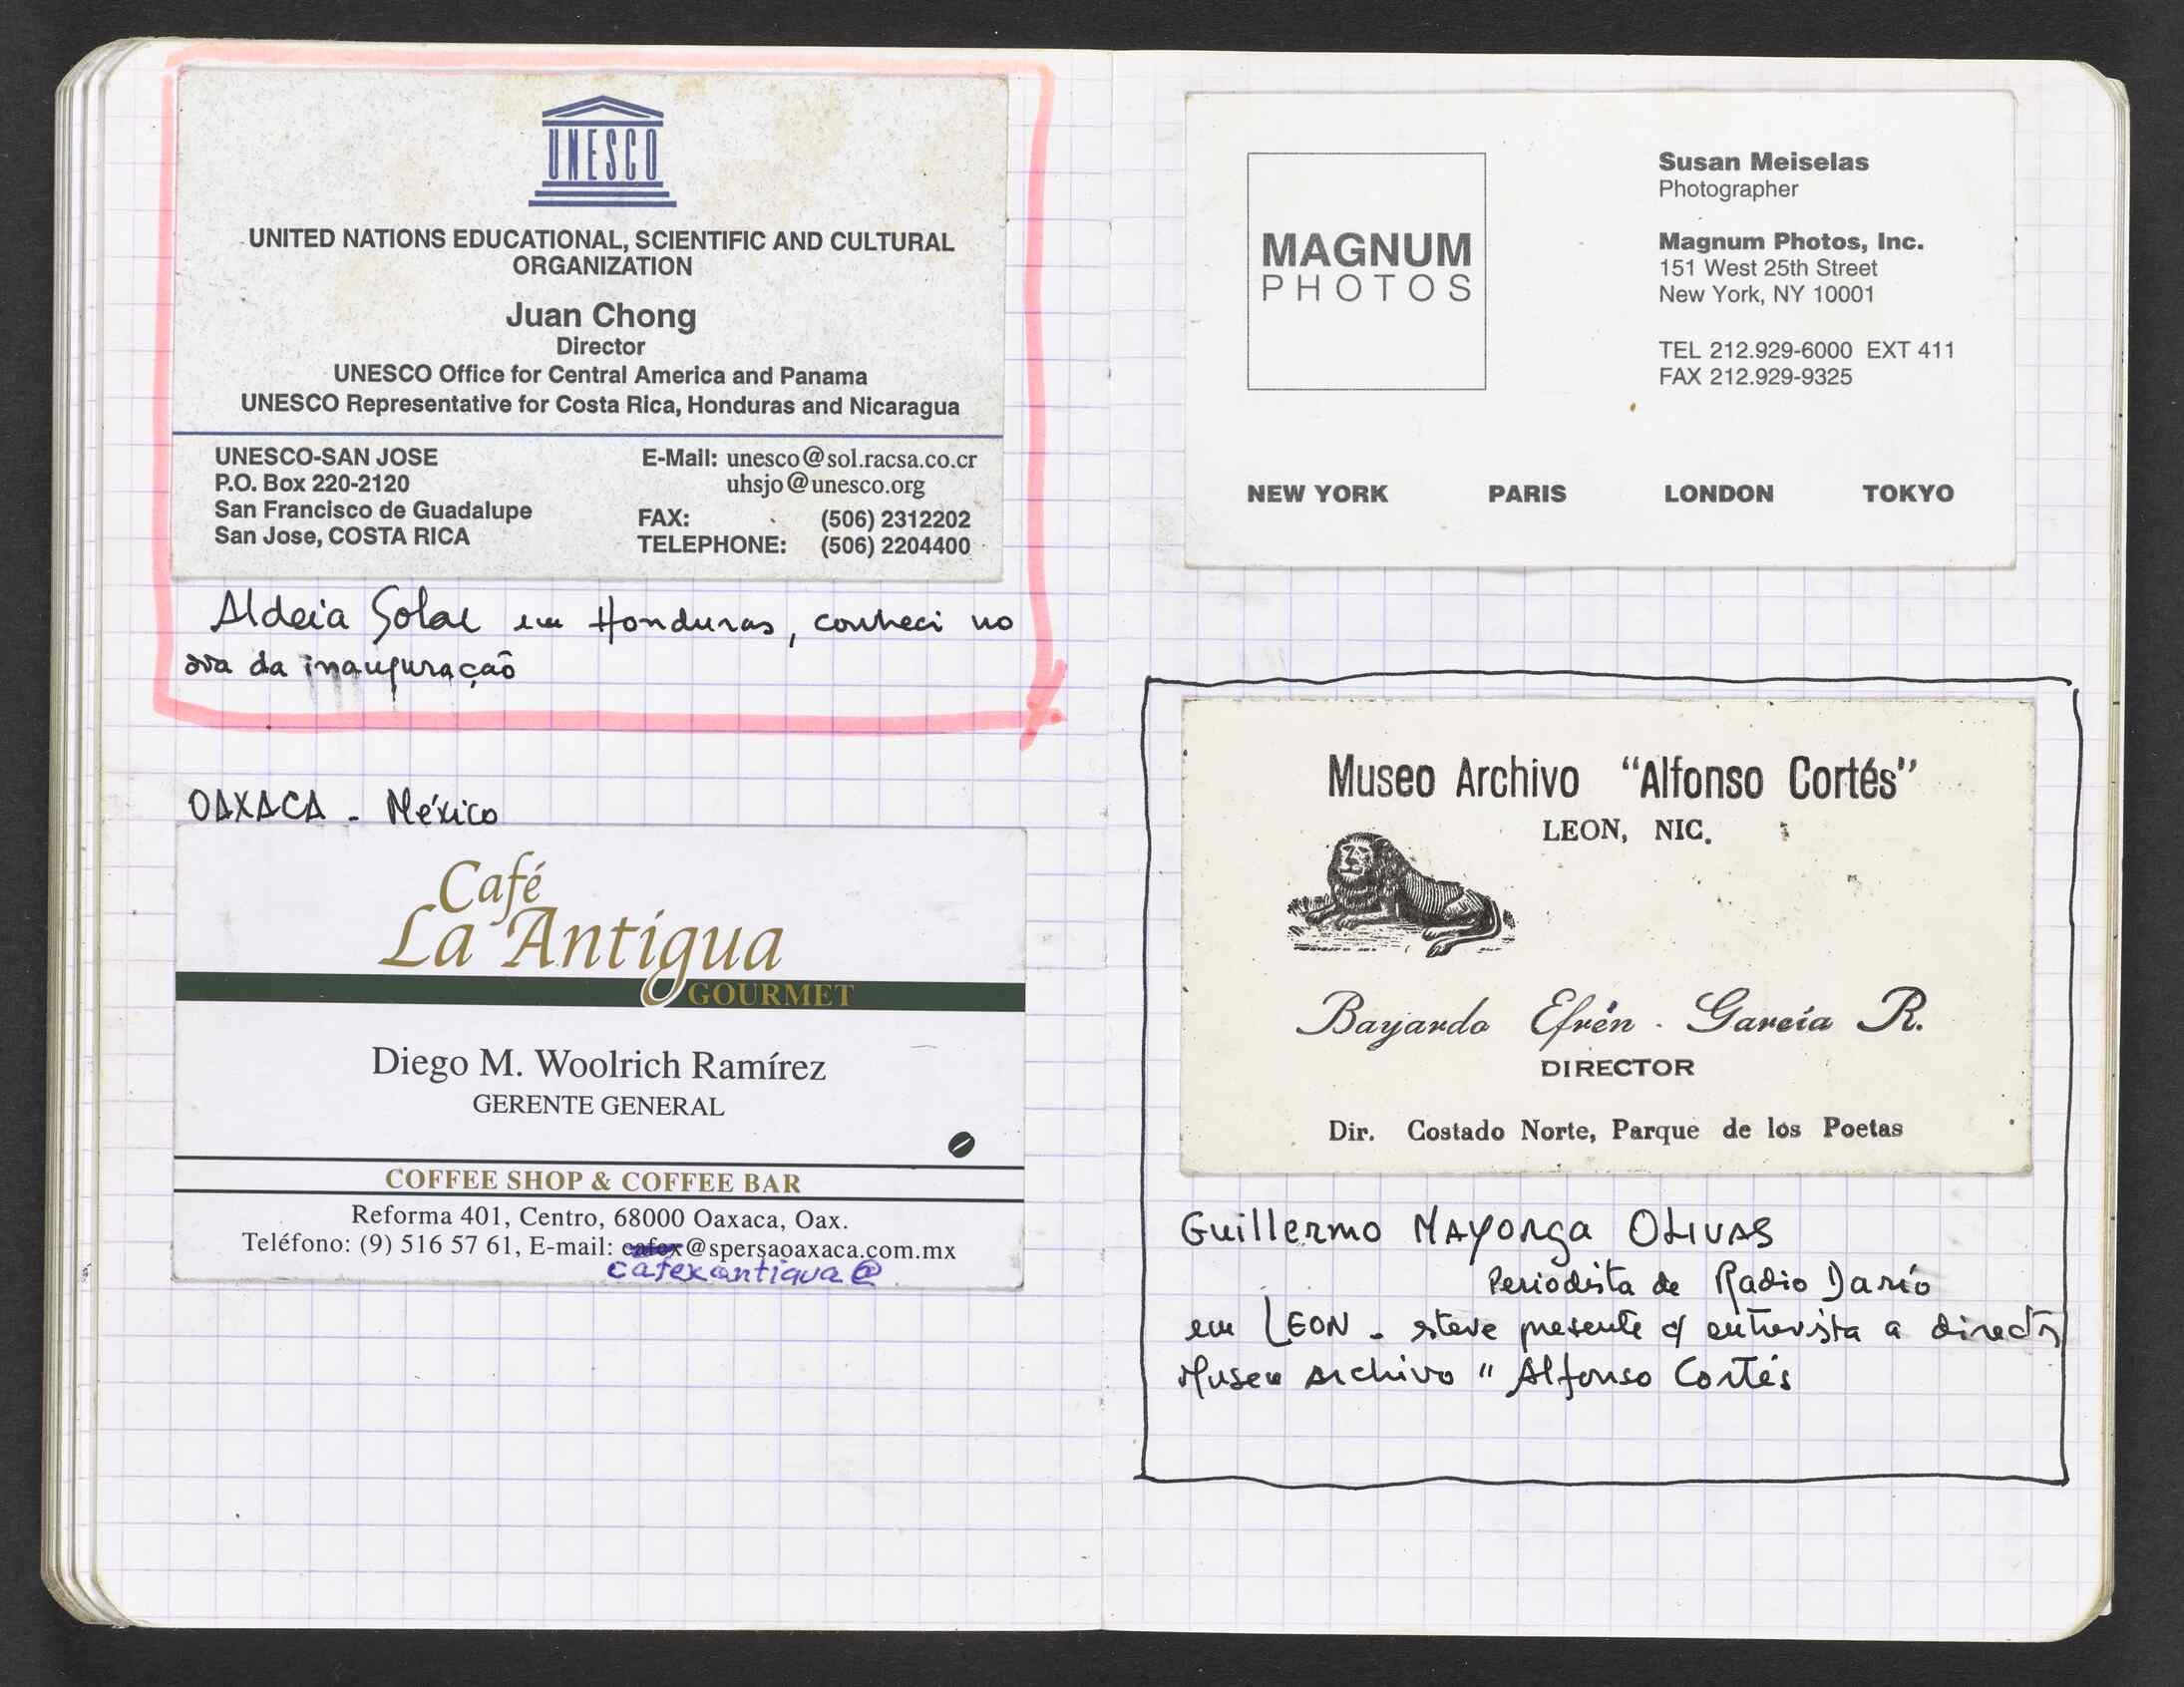 UNESCO
UNITED NATIONS EDUCATIONAL, SCIENTIFIC AND CULTURAL
ORGANIZATION
Juan Chong
Director
UNESCO Office for Central America and Panama
UNESCO Representative for Costa Rica, Honduras and Nicaragua
UNESCO-SAN JOSE
P.O. Box 220-2120
San Francisco de Guadalupe
San Jose, COSTA RICA
E-Mail: unesco@sol.racsa.co.cr
uhsjo@unesco.org
FAX: (506) 2312202
TELEPHONE: (506) 2204400
Aldeia Solar em Honduras, conheci no
da inauguração
OAXACA - México
Café
La Antigua
GOURMET
Diego M. Woolrich Ramírez
GERENTE GENERAL
COFFEE SHOP & COFFEE BAR
Reforma 401, Centro, 68000 Oaxaca, Oax.
Teléfono: (9) 516 57 61, E-mail: cafex@spersaoaxaca.com.mx
cafexantigua@
MAGNUM
PHOTOS
Susan Meiselas
Photographer
Magnum Photos, Inc.
151 West 25th Street
New York, NY 10001
TEL 212.929-6000 EXT 411
FAX 212.929-9325
NEW YORK PARIS LONDON TOKYO
Museo Archivo "Alfonso Cortés"
LEON, NIC.
Bayardo Efrén García R.
DIRECTOR
Dir. Costado Norte, Parque de los Poetas
Guillermo MAYORGA OLIVAS
Periodista de Radio Darío
em LEON - esteve presente c/ entrevista a director
Museu Archivo " Alfonso Cortés